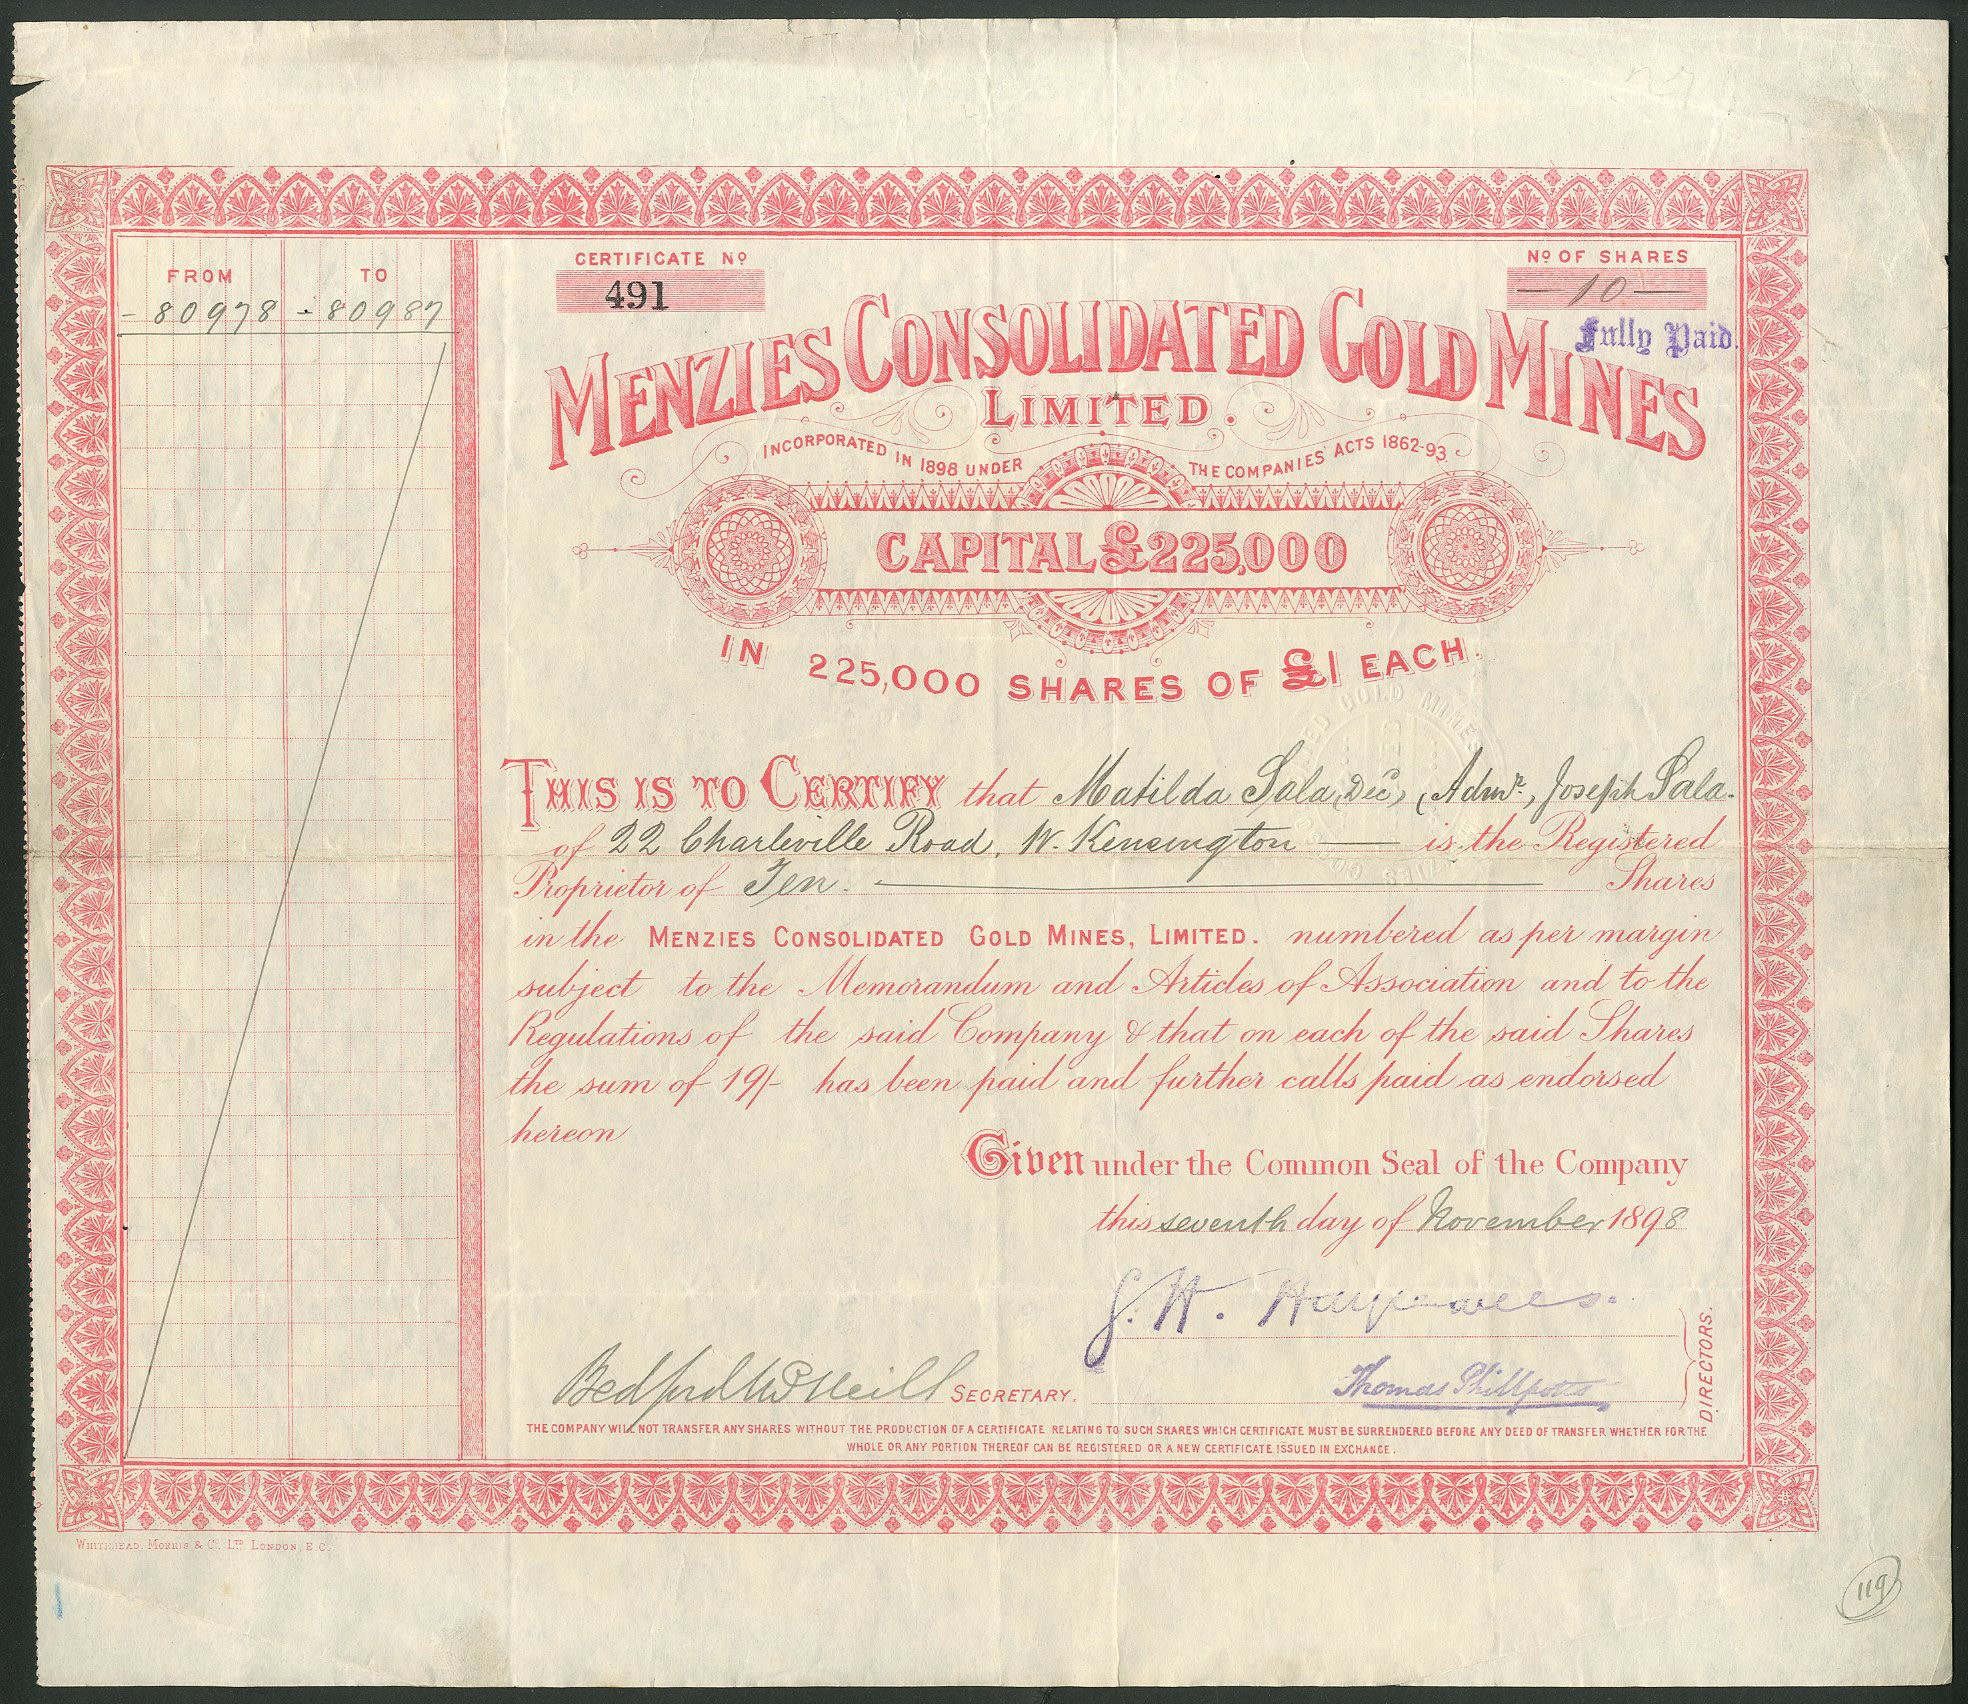 FROM TO
- 80978 - 80987
CERTIFICATE No
491
No OF SHARES
— 10 —
Fully Paid.
MENZIES CONSOLIDATED GOLD MINES
LIMITED.
INCORPORATED IN 1898 UNDER THE COMPANIES' ACTS 1862-93
CAPITAL £225,000
IN 225,000 SHARES OF £1 EACH.
THIS IS TO CERTIFY that Matilda Sala, Dec, (Admr, Joseph Sala.
of 22 Charleville Road, W. Kensington — is the Registered
Proprietor of Ten. — Shares
in the MENZIES CONSOLIDATED GOLD MINES, LIMITED. numbered as per margin
subject to the Memorandum and Articles of Association and to the
Regulations of the said Company & that on each of the said Shares
the sum of 19/- has been paid and further calls paid as endorsed
hereon
Given under the Common Seal of the Company
this seventh day of November 1898
J. H. Hargreaves.
Thomas Phillpotts
DIRECTORS.
Bedford McNeill SECRETARY.
THE COMPANY WILL NOT TRANSFER ANY SHARES WITHOUT THE PRODUCTION OF A CERTIFICATE RELATING TO SUCH SHARES WHICH CERTIFICATE MUST BE SURRENDERED BEFORE ANY DEED OF TRANSFER WHETHER FOR THE
WHOLE OR ANY PORTION THEREOF CAN BE REGISTERED OR A NEW CERTIFICATE ISSUED IN EXCHANGE.
WHITEHEAD, MORRIS & Co. LTD. LONDON, E.C.
119